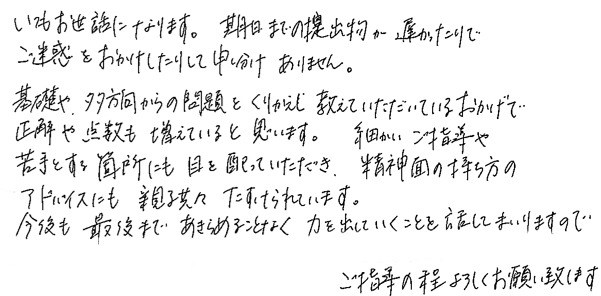 いつもお世話になります。期日までの提出物が遅かったりで
ご迷惑をおかけしたりして申し分け ありません。
基礎や、多方向からの問題とくりかえし教えていただいているおかげで
正解や点数も増えていると思います。 細かいご指導や
苦手とする箇所にも目を配っていただき、精神面の持ち方の
アドバイスにも親子共々たすけられています。
今後も最後まであきらめることなく力を出していくことを話してまいりますので
ご指導の程よろしくお願い致します